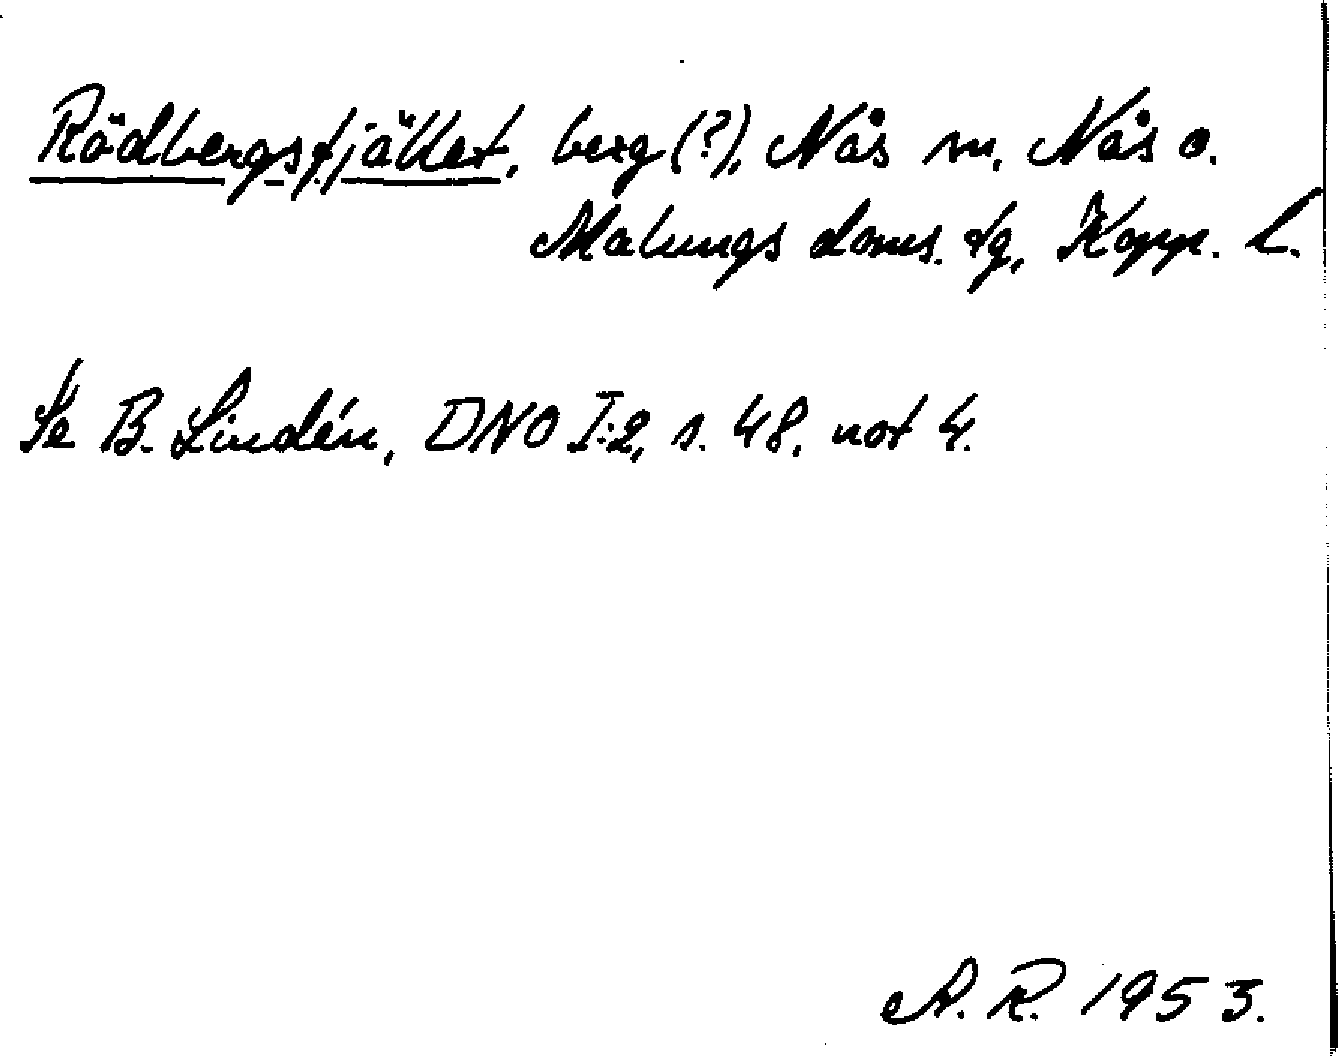 Rödbergsfjället, berg (?), Nås sn, Nås o.
Malungs doms. tg, Kopp. l.
Se B. Lindén, DNO I:2, s. 48, not 4.
A. R. 1953.